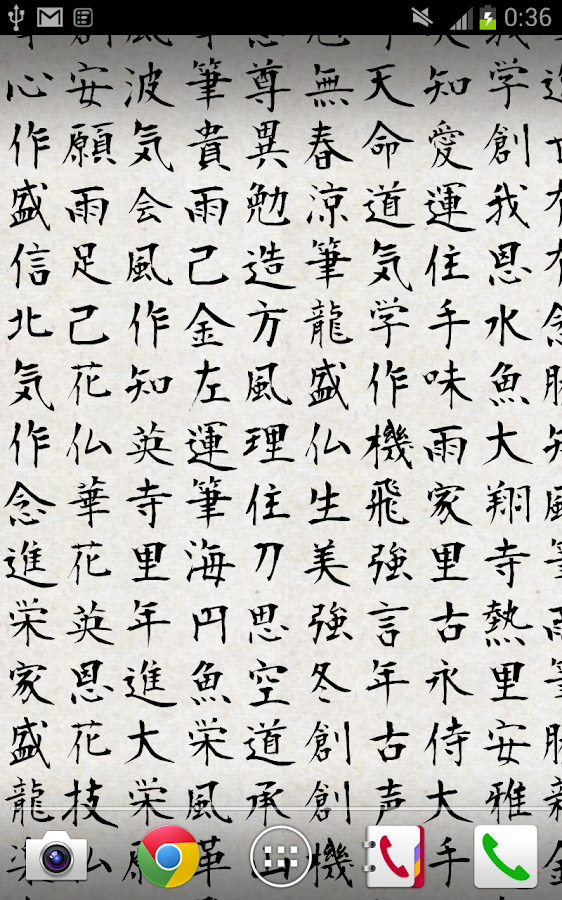 0:36
心安波筆尊無天知学
作願気貴異春命愛創
盛雨会雨勉涼道運我
信足風己造筆気住恩
北己作金方龍学手水
気花知左風盛作味魚
作仏英運理仏機雨大
念華寺筆住生飛家翔
進花里海刀美強里寺
栄英年円思強言古熱
家恩進魚空冬年永里
盛花大栄道創古侍安
龍技栄風承創声大雅
仏 機 手